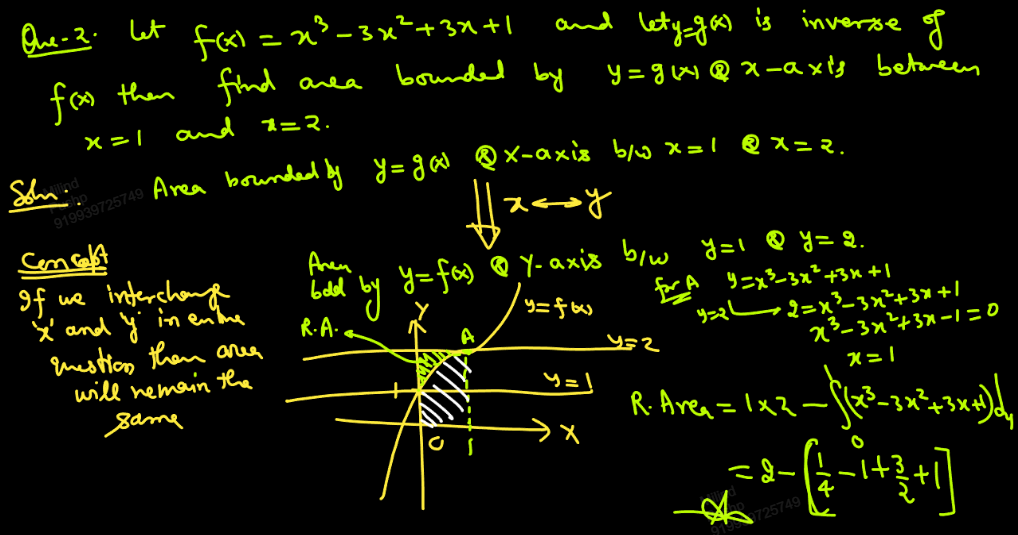 Que-2. Let f(x) = x³ - 3x² + 3x + 1 and let y = g(x) is inverse of
f(x) then find area bounded by y = g(x) & x-axis between
x = 1 and x = 2.
Soln: Area bounded by y = g(x) & X-axis b/w x = 1 & x = 2.
919939725749
x ↔ y
Concept
If we interchange
'x' and 'y' in entire
question then area
will remain the
same
Area
bdd by y = f(x) & Y-axis b/w y = 1 & y = 2.
R.A.
Y
A
y = f(x)
y = 2
y = 1
1
O
1
X
for A y = x³ - 3x² + 3x + 1
y = 2 → 2 = x³ - 3x² + 3x + 1
x³ - 3x² + 3x - 1 = 0
x = 1
R. Area = 1 × 2 - ∫₀¹ (x³ - 3x² + 3x + 1) dy
= 2 - [1/4 - 1 + 3/2 + 1]
919939725749